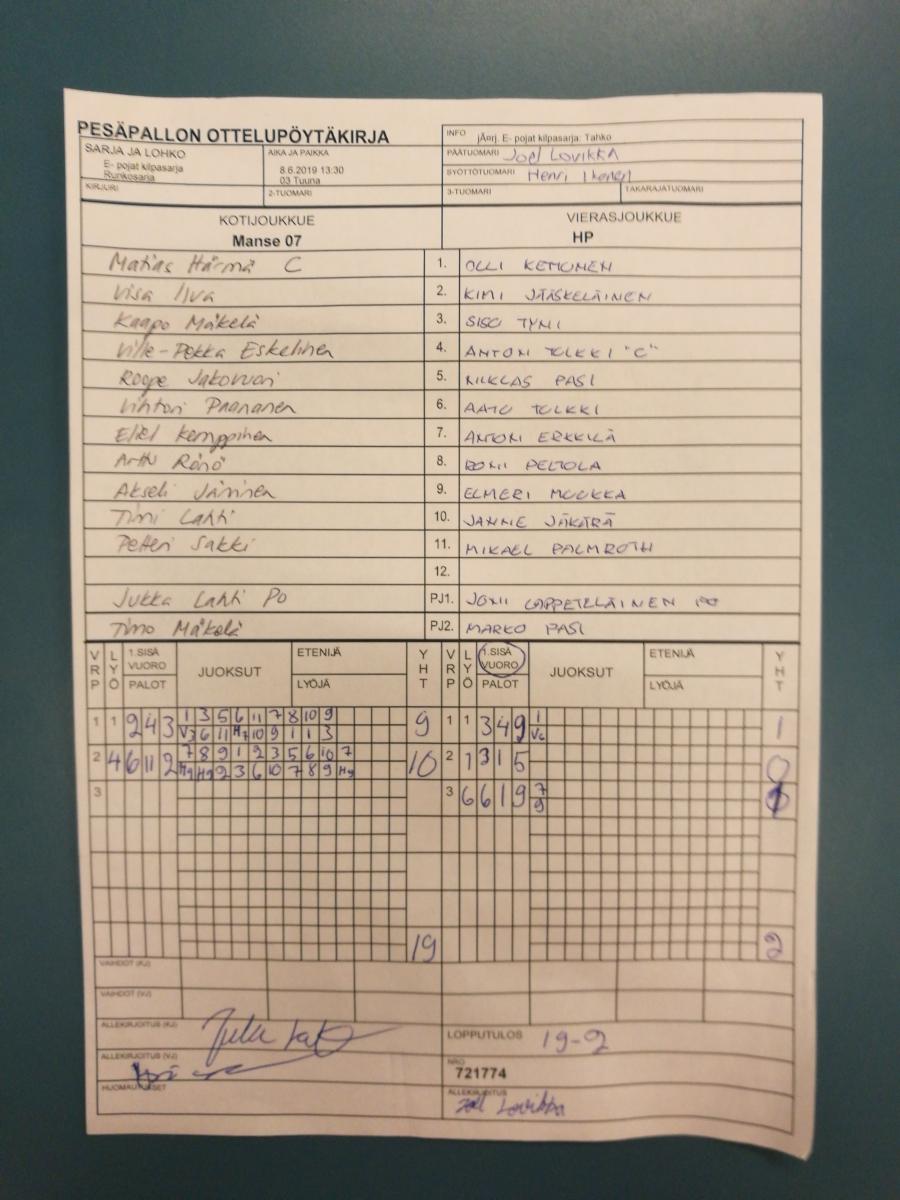 PESÄPALLON OTTELUPÖYTÄKIRJA
INFO jÄorj. E- pojat kilpasarja: Tahko
SARJA JA LOHKO
E- pojat kilpasarja
Runkosarja
AIKA JA PAIKKA
8.6.2019 13:30
03 Tuuna
PÄÄTUOMARI Joel Lovikka
SYÖTTÖTUOMARI Henri Ikonen
KIRJURI 2-TUOMARI 3-TUOMARI TAKARAJATUOMARI
KOTIJOUKKUE VIERASJOUKKUE
Manse 07 HP
Matias Härmä C 1. OLLI KEMUNEN
Visa Iiva 2. KIMI JÄÄSKELÄINEN
Kaapo Mäkelä 3. SISU TYNI
Ville-Pekka Eskelinen 4. ANTON TOLKKI "C"
Roope Jakorvari 5. NIKLAS PASI
Vihtori Paananen 6. AATU TOLKKI
Eliel Kemppinen 7. ANTON ERKKILÄ
Arttu Rönö 8. RONI PELTOLA
Akseli Jäminen 9. ELMERI MUUKKA
Timi Lahti 10. JANNE JÄKÄRÄ
Petteri Sakki 11. MIKAEL PALMROTH
12.
Jukka Lahti Po PJ1. JONI LAPPETELÄINEN PO
Timo Mäkelä PJ2. MARKO PASI
VRP LYÖ 1.SISÄ VUORO PALOT JUOKSUT ETENIJÄ LYÖJÄ YHT VRP LYÖ 1.SISÄ VUORO PALOT JUOKSUT ETENIJÄ LYÖJÄ YHT
1 1 9 4 3 1 3 5 6 11 7 8 10 9 9 1 1 3 4 9 1 1
V3 6 11 H7 10 9 1 1 3 V6
2 4 6 11 2 7 8 9 1 2 3 5 6 10 7 10 2 1 3 1 5 0
H9 H9 2 3 6 10 7 8 9 H9
3 3 6 6 1 9 7 1
9
19 2
VAIHDOT (KJ)
VAIHDOT (VJ)
ALLEKIRJOITUS (KJ) LOPPUTULOS 19-2
ALLEKIRJOITUS (VJ) NRO
721774
HUOMAUTUKSET ALLEKIRJOITUS
Joel Lovikka